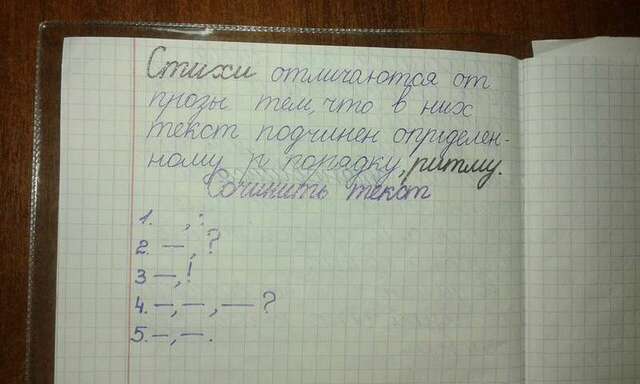 Стихи отличаются от
прозы тем, что в них
текст подчинен определен-
ному порядку, ритму.
Сочинить текст
1. — , :
2. — , ?
3 — , !
4. — , — , — ?
5. — , — .